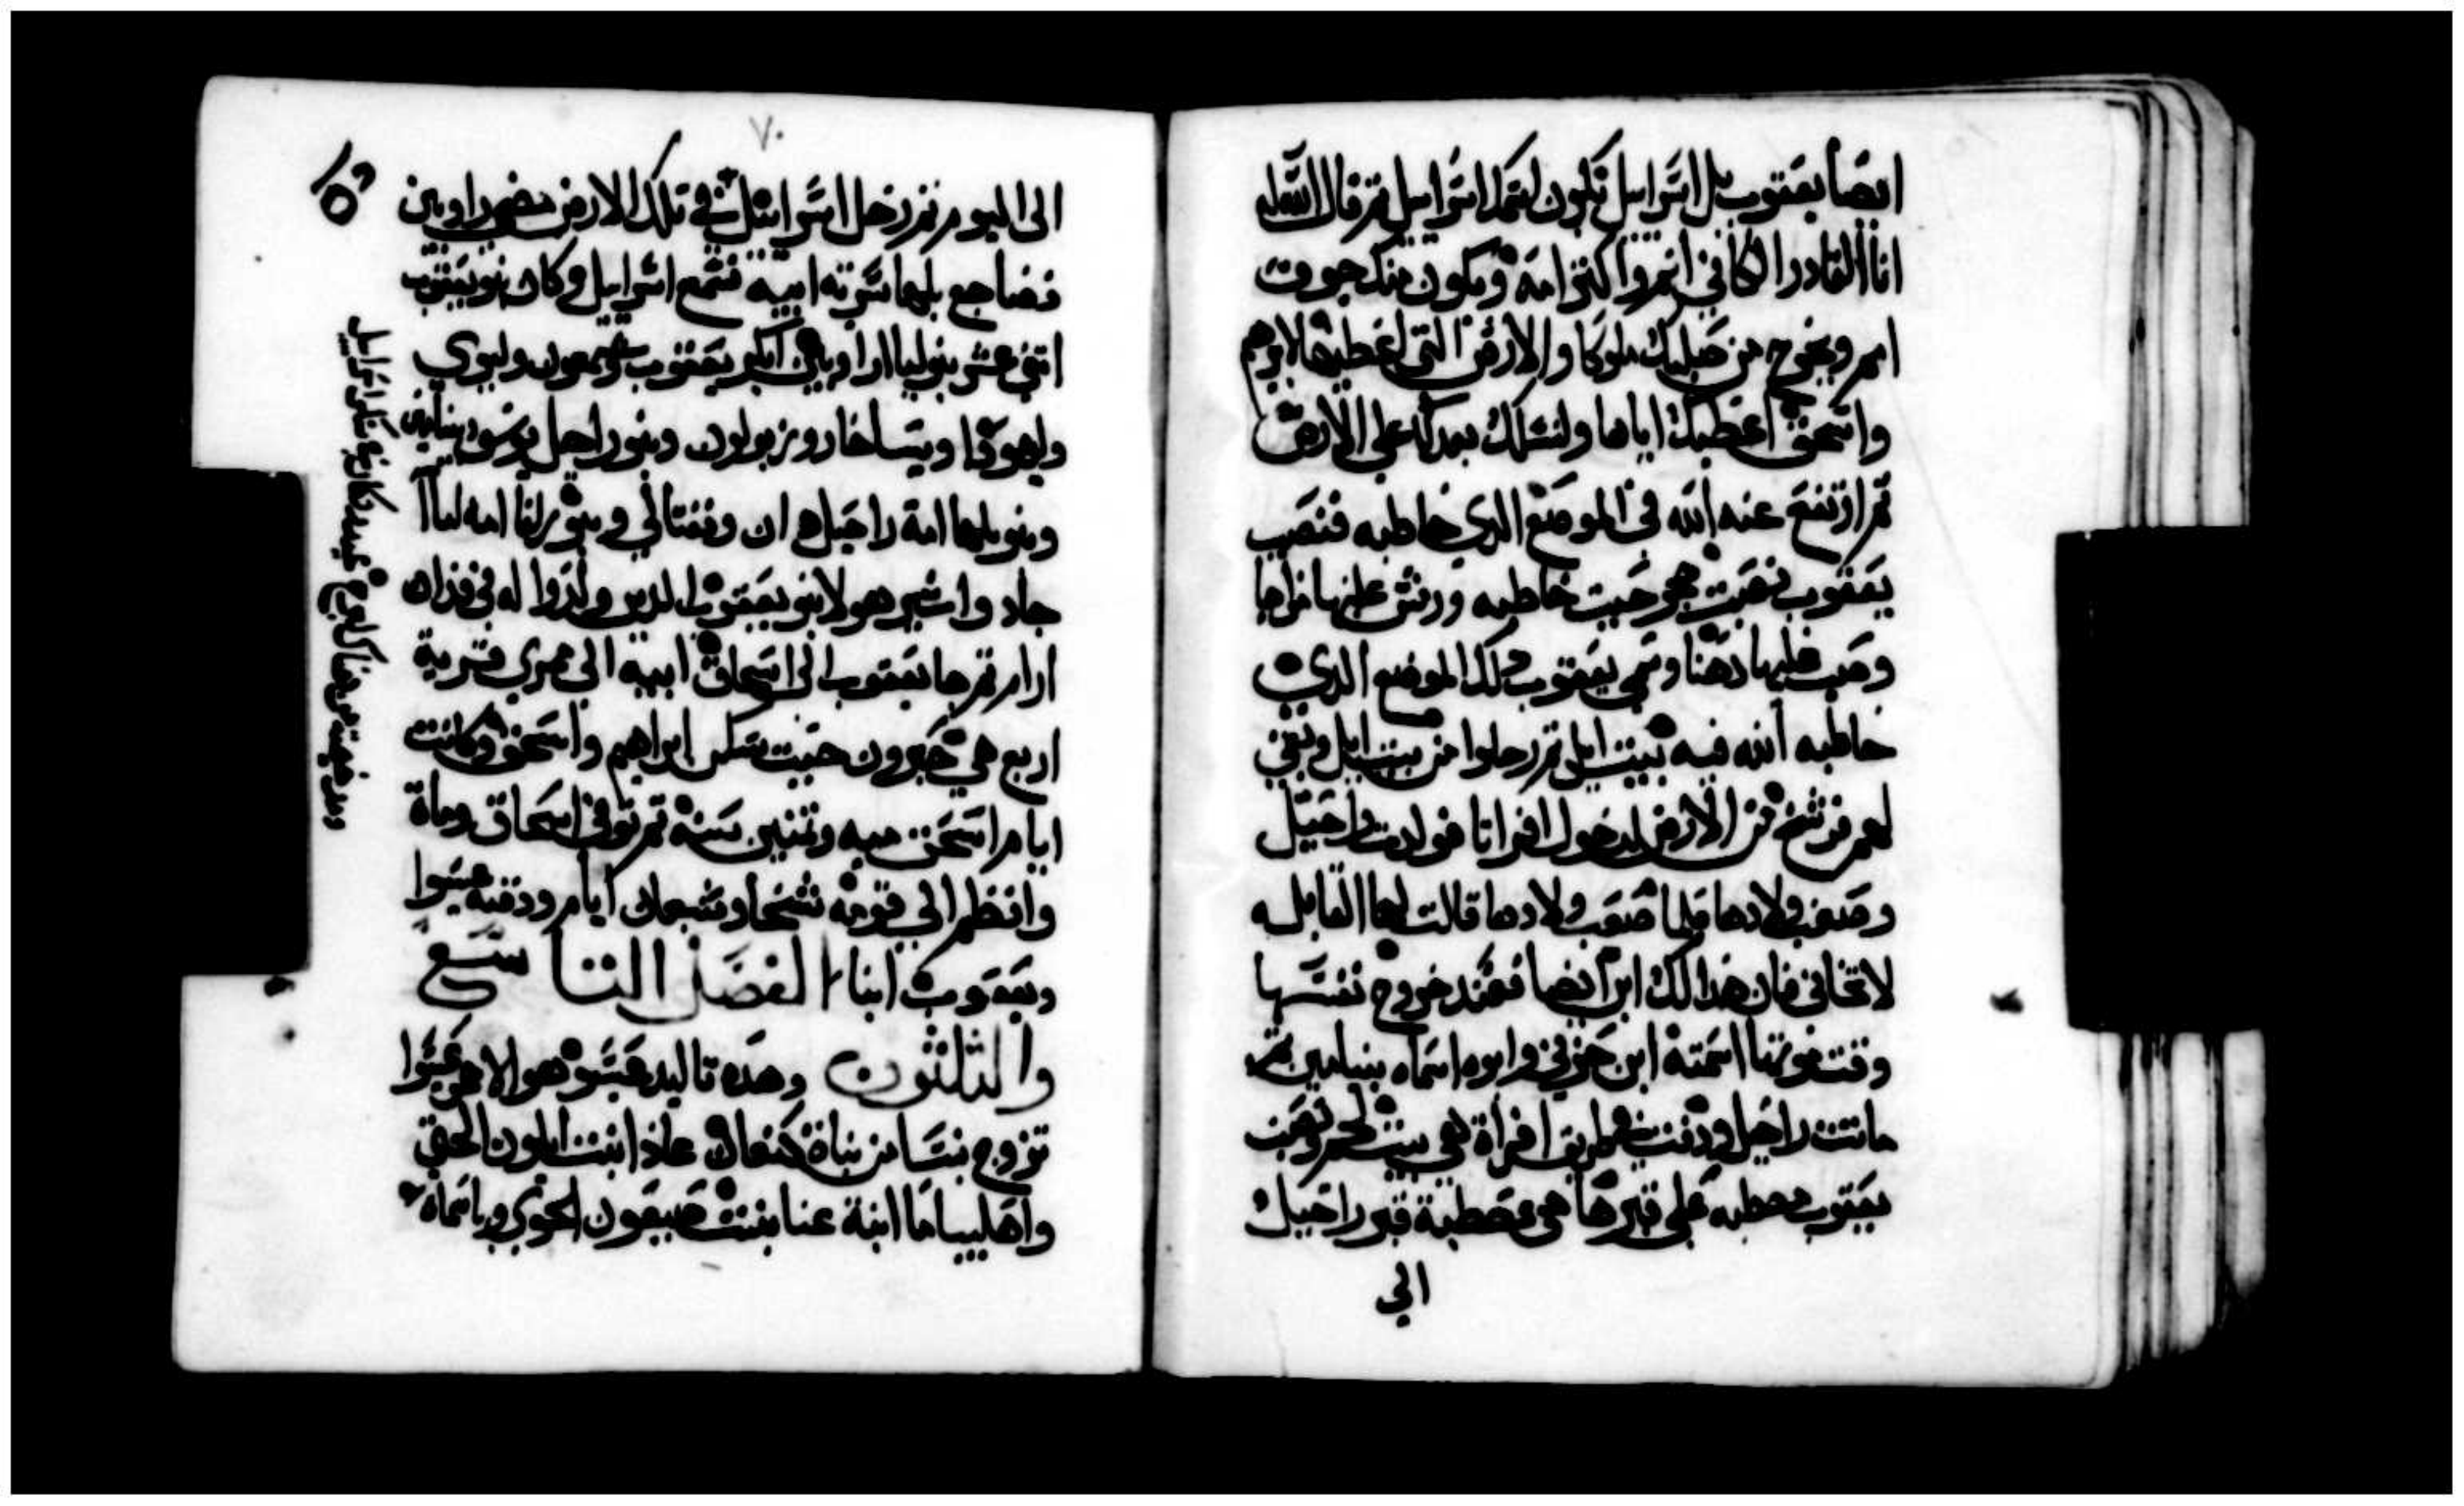 ايضا يعقوب بل اسراييل تكون اسمك اسراييل تم قال الله له
انا القادر الكافي انمو واكثر امة ويكون منك جوق
امم ويخرج من صلبك ملوكا والارض التي اعطيها لابرهم
واسحق اعطيك اياها ولنسلك بعدك اعطي الارض
تم ارتفع عنه الله في الموضع الدي خاطبه فنصب
يعقوب نصبت حجر حيت خاطبه ورش عليها مزاجا
وصب عليها دهنا وسمي يعقوب دلك الموضع الدي
خاطبه الله فيه بيت ايل تم رحلوا من بيت ايل وبقي
لهم فرسخ من الارض لدخول افراتا فولدت راحيل
وصعب ولادها فلما صعب ولادها قالت لها القابله
لا تخافي فان هدا لك ابن ايضا فعند خروج نفسها
وقت موتها اسمته ابن حزني وابوه اسماه بنيامين تم
ماتت راحيل ودفنت في طريق افراة هي بيت لحم ونصب
يعقوب مصطبه علي قبرها هي مصطبة قبر راحيل
الي
٧٠
الي اليوم تم رحل اسراييل في تلك الارض مضي راوبين
فضاجع بلها سرية ابيه فسمع اسراييل وكان بنو يعقوب
اتني عشر بنو ليا راوبين بكر يعقوب وشمعون وليوي
ويهودا ويساخار وزبولون وبنو راحيل يوسف وبنيامين
وبنو بلها امة راحيل دان ونفتالي وبنو زلفا امه ليا
جاد واشير هولا بنو يعقوب الدين ولدوا له في فدان
ارام تم جا يعقوب الي اسحاق ابيه الي ممري قرية
اربع هي حبرون حيت سكن ابراهيم واسحق وكانت
ايام اسحق ميه وتمنين سنه تم توفي اسحاق ومات
وانظم الي قومه شيخا وشبعان ايام ودفنه عيسوا
ويعقوب ابناه الفصل التاسع
والثلثون وهده تاليد عيسو هو الادوم عيسوا
تزوج نسا من بناة كنعان عادا ابنت ايلون الحتي
واهليباما ابنة عنا بنت صبعون الحوي وباسماة